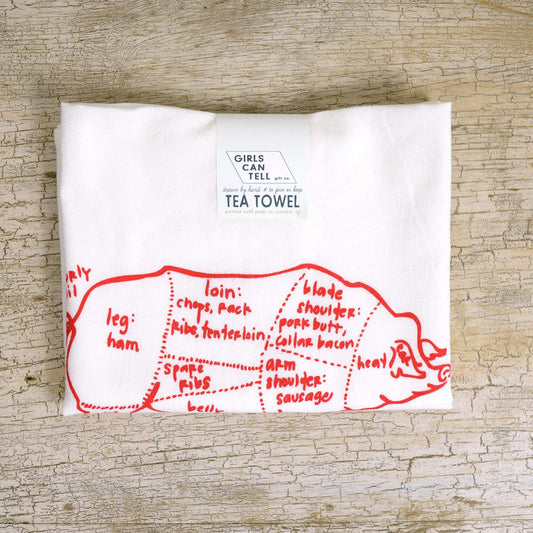 GIRLS
CAN
TELL gift co.
drawn by hand & to give or keep
TEA TOWEL
printed with pride in camden, nj
leg:
ham
loin:
chops, rack
Ribs, tenterloin
blade
shoulder:
pork butt,
collar bacon
head
spare
ribs
arm
shoulder:
sausage